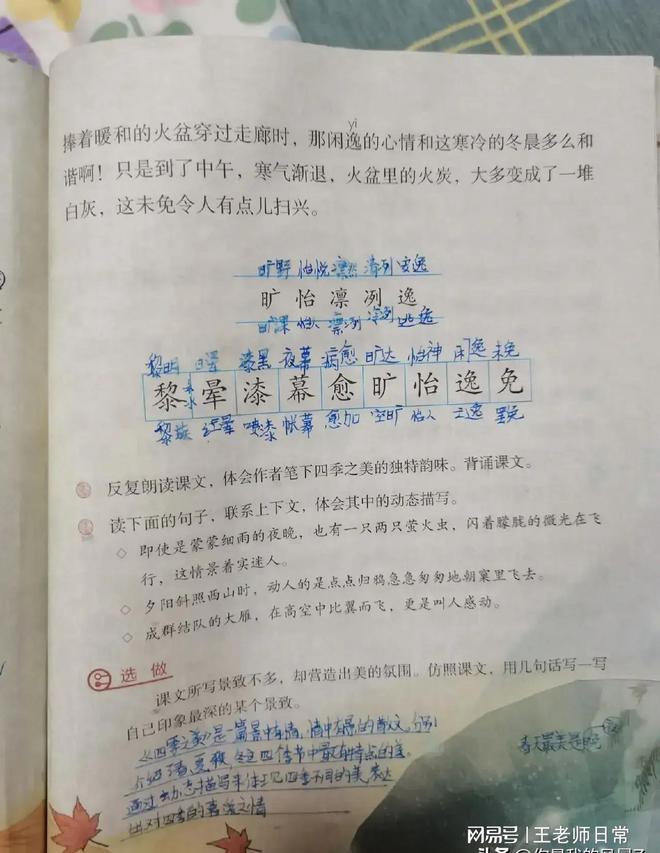 yì
捧着暖和的火盆穿过走廊时，那闲逸的心情和这寒冷的冬晨多么和
谐啊！只是到了中午，寒气渐退，火盆里的火炭，大多变成了一堆
白灰，这未免令人有点儿扫兴。
旷野 怡悦 凛然 清冽 安逸
旷怡凛冽逸
旷课 怡人 凛冽 冷冽 逃逸
黎明 日晕 漆黑 夜幕 病愈 旷达 怡神 闲逸 未免
黎晕漆幕愈旷怡逸免
黎族 红晕 喷漆 帐幕 愈加 空旷 怡人
反复朗读课文，体会作者笔下四季之美的独特韵味。背诵课文。
读下面的句子，联系上下文，体会其中的动态描写。
◇ 即使是蒙蒙细雨的夜晚，也有一只两只萤火虫，闪着朦胧的微光在飞
行，这情景着实迷人。
◇ 夕阳斜照西山时，动人的是点点归鸦急急匆匆地朝窠里飞去。
◇ 成群结队的大雁，在高空中比翼而飞，更是叫人感动。
选做
课文所写景致不多，却营造出美的氛围。仿照课文，用几句话写一写
自己印象最深的某个景致。
《四季之美》是一篇景中有情，情中有景的散文。分别
介绍 四个季节中最有特点的美。
通过动态描写来体现四季不同的美，表达
出对四季的喜爱之情
春天最美是
网易号 | 王老师日常